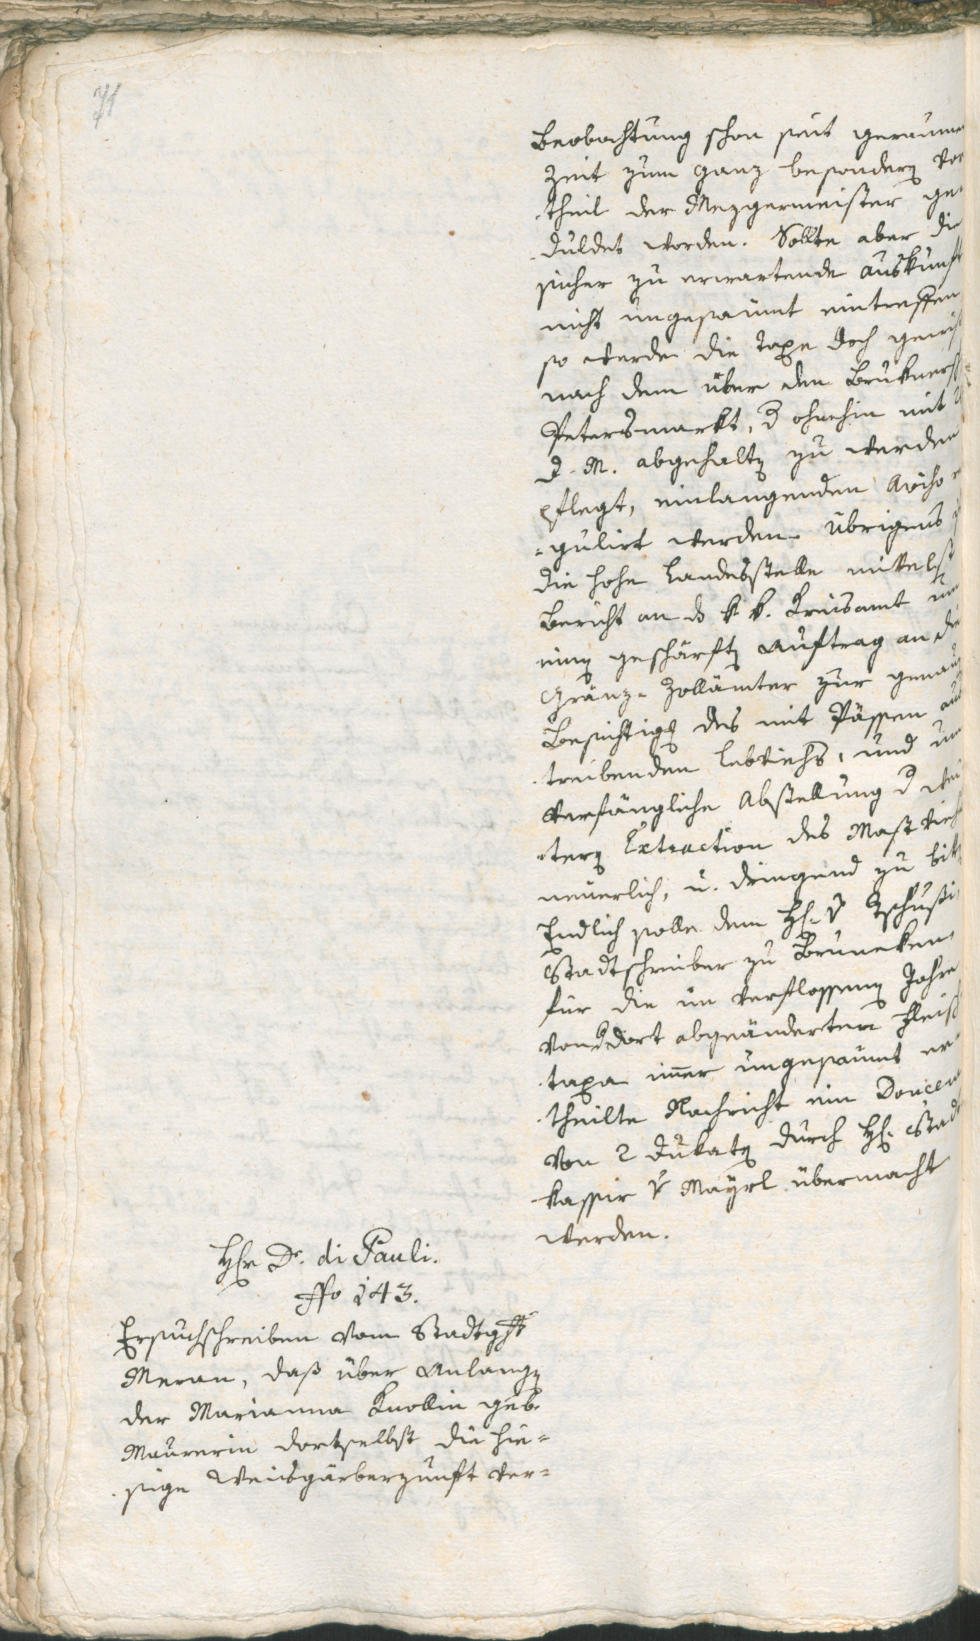 71
Beobachtung schon seit geraumer
Zeit zum ganz besonders Vor
theil der Mezgermeister ge-
duldet worden. Sollte aber die
sicher zu erwartende Auskunft
nicht ungesaumt eintreffen
so werde die Taxe doch gewiß
nach dem über den Brukner
Petersmarkt, d ohnehin mit
d. M. abgehalt zu werden
pflegt, einlangenden Aviso re
-gulirt werden. Übrigens
die hohe Landesstelle mittelst
Bericht an d k. k. Kreisamt um
einen geschärften Auftrag an die
Gränz-Zollämter zur genauen
Besichtigg des mit Pässen aus
treibenden Lebviehs, und un
verfängliche Abstellung d wei
tern Extraction des Mastviehs
neuerlich, u. dringend zu bitt
Endlich solle dem H. v
Stadtschreiber zu Brunecken
für die im verflossenen Jahre
von dort abgeänderten Fleisch
taxa immer ungesaumt er
theilte Nachricht ein Douceur
von 2 Dukaten durch H. Stadt
kassier v Mayrl übermacht
werden.
Hr. Dr. di Pauli.
No 143.
Ersuchschreiben vom Stadtgst
Meran, daß über Anlangen
der Marianna Knollin geb.
Maurerin dortselbst die hie=
sige Weisgärberzunft ver=